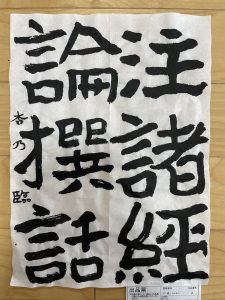 注諸経
論撰話
杏乃臨
出品票